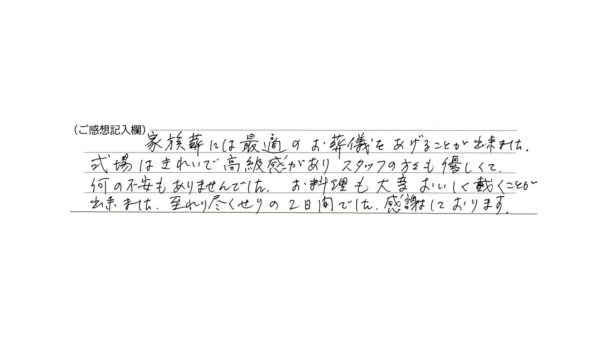 (ご感想記入欄) 家族葬には最適のお葬儀をあげることが出来ました。
式場はきれいで高級感があり スタッフの方も優しくて、
何の不安もありませんでした。 お料理も大変おいしく戴くことが
出来ました。至れり尽くせりの2日間でした。感謝しております。